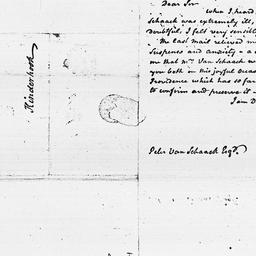 Dear Sir
when I heard
Schaack was extremely ill,
doubtful, I felt very sensibl
The last mail relieved m
Suspense and anxiety - a
me that Mrs. Van Schaack w
you both in this joyful Occas
Providence which has so far
to confirm and preserve it -
I am D
Peter Van Schaack Esqr.
Kinderhook